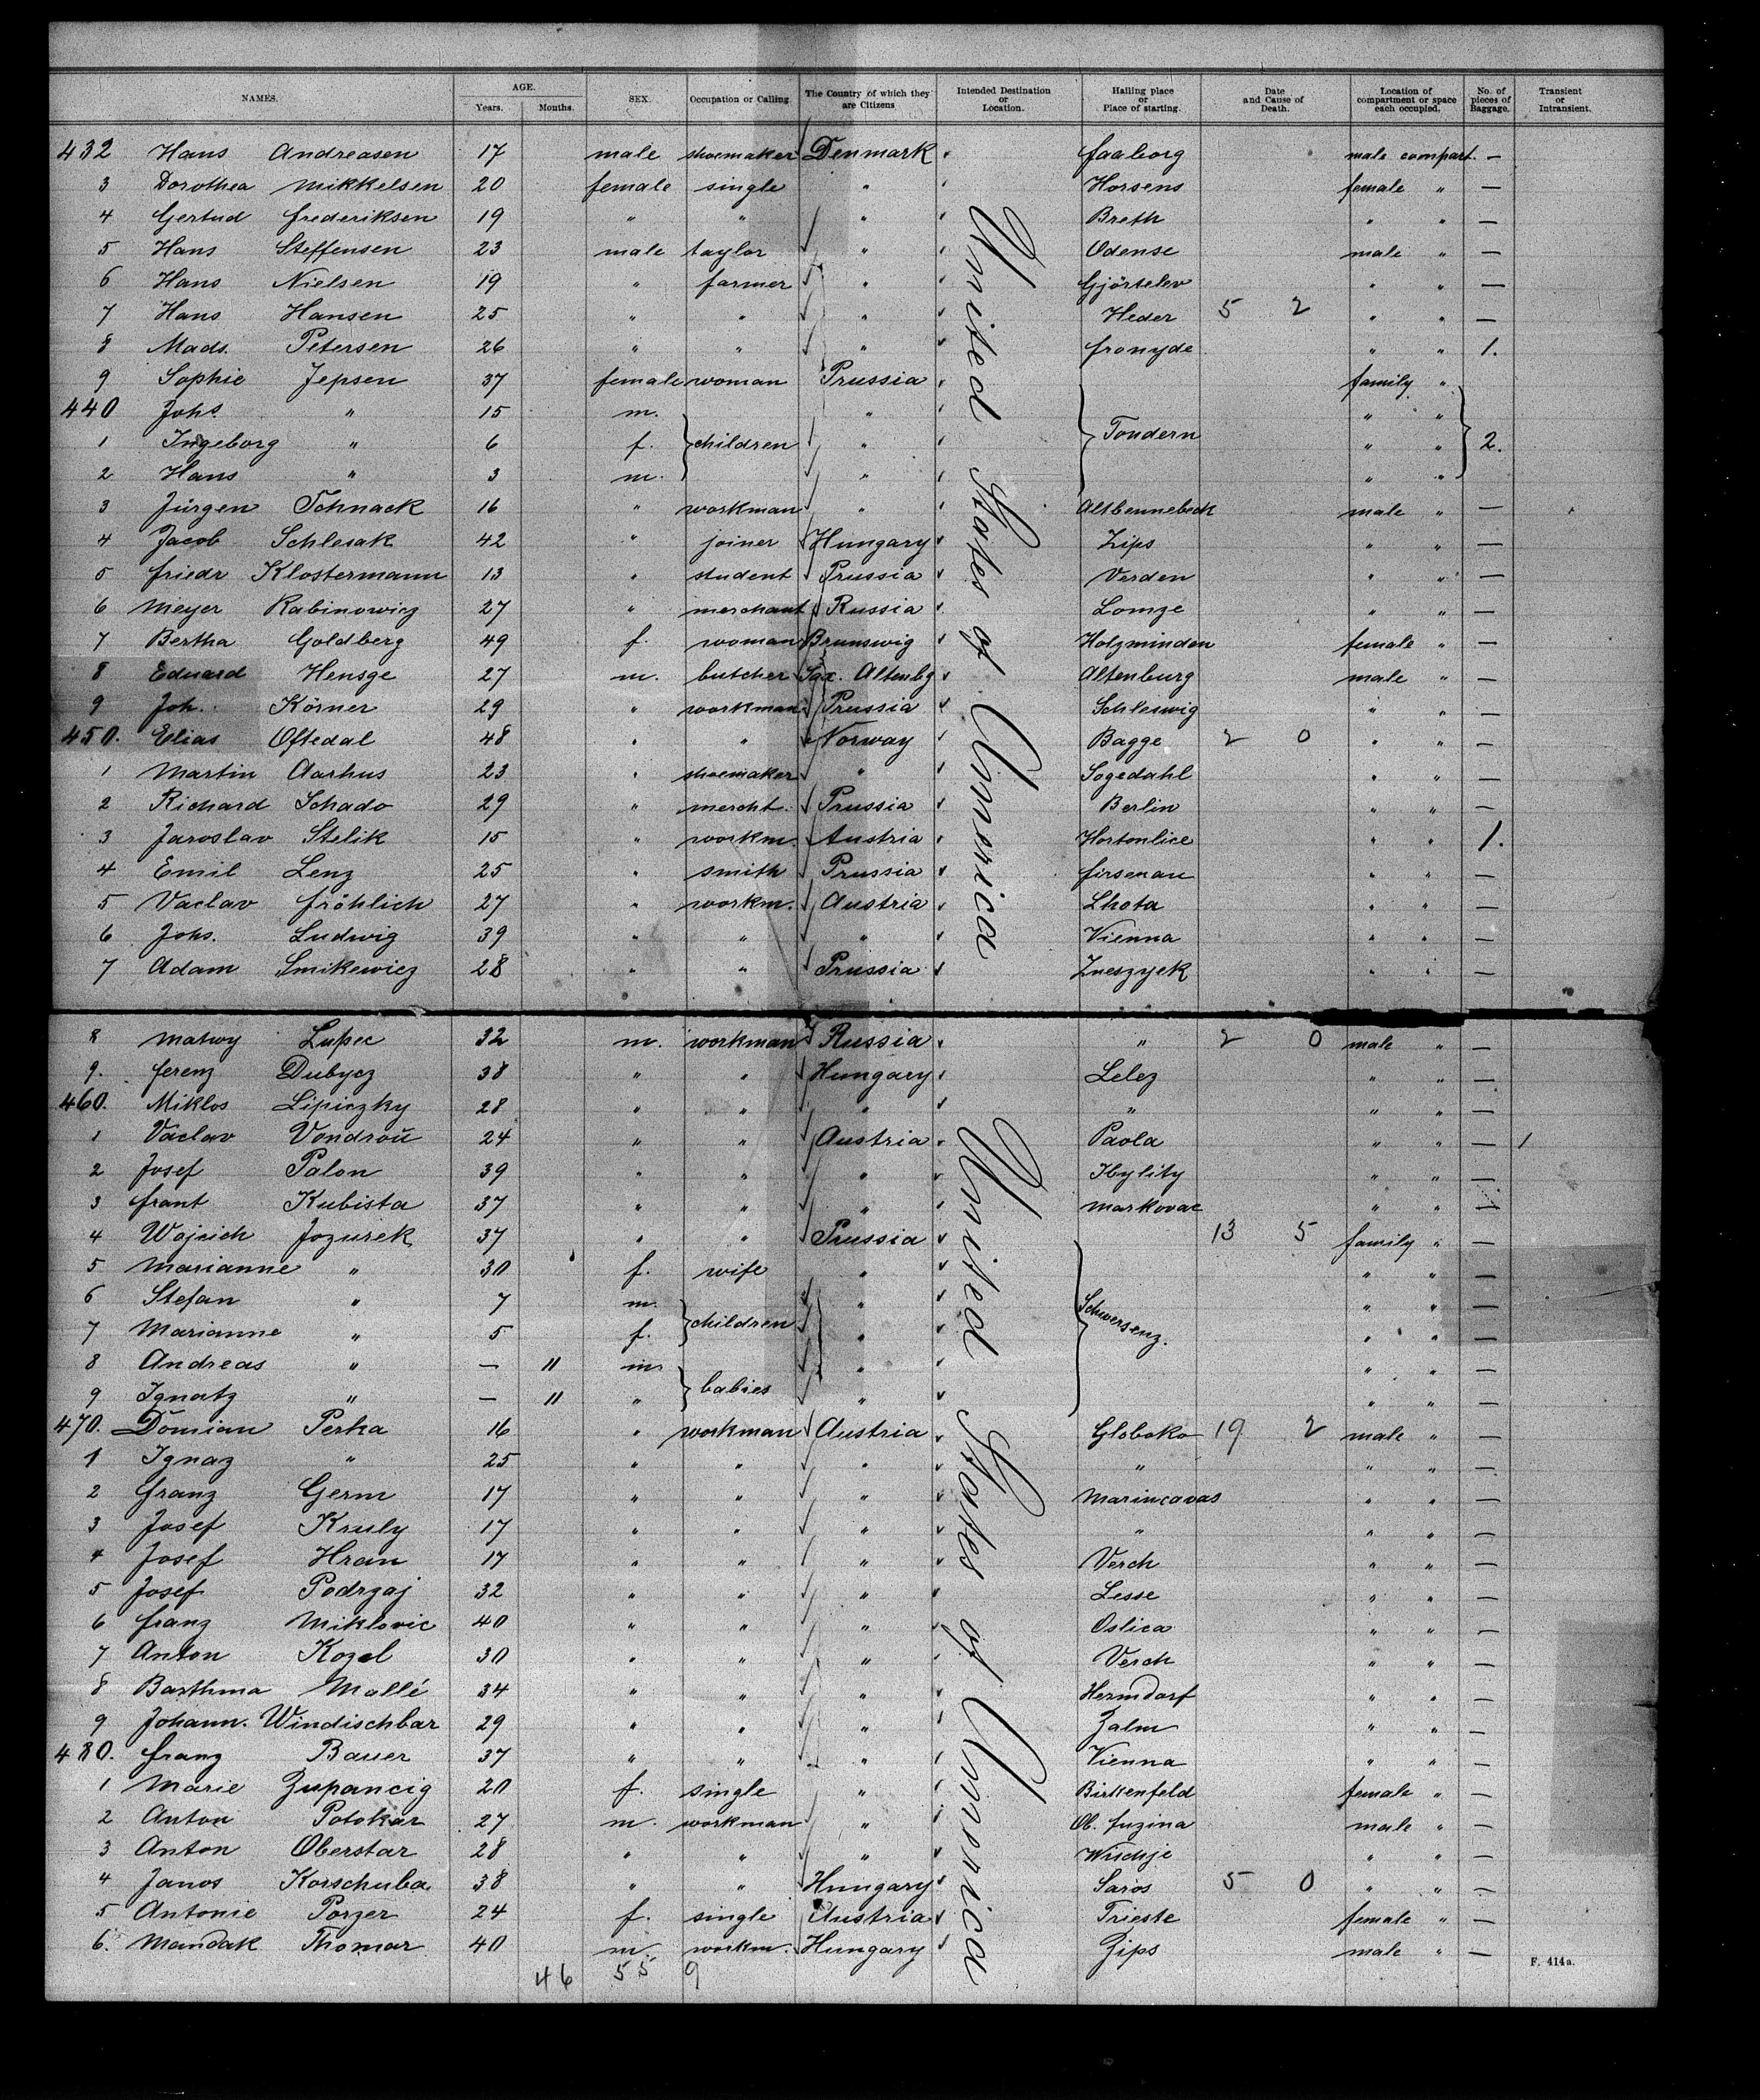 NAMES. AGE. Years. Months. SEX. Occupation or Calling. The Country of which they are Citizens Intended Destination or Location. Hailing place or Place of starting. Date and Cause of Death. Location of compartment or space each occupied. No. of pieces of Baggage. Transient or Intransient.
432 Hans Andreasen 17 male shoemaker Denmark faaborg male compart. —
3 Dorothea Mikkelsen 20 female single " Horsens female " —
4 Gertud frederiksen 19 " " " Breth " " —
5 Hans Steffensen 23 male taylor " Odense male " —
6 Hans Nielsen 19 " farmer " Gjörtelev " " —
7 Hans Hansen 25 " " " Heder 5 2 " " —
8 Mads. Petersen 26 " " " fronyde " " 1.
9 Sophie Jepsen 37 female woman Prussia family "
440 Johs. " 15 m. " " "
1 Ingeborg " 6 f. children " Tondern " " 2.
2 Hans " 3 m. " " "
3 Jürgen Schnack 16 " workman " Altbennebeck male " —
4 Jacob Schlesak 42 " joiner Hungary Zips " " —
5 friedr Klostermann 13 " student Prussia Verden " " —
6 Meyer Rabinowicz 27 " merchant Russia Lomze " " —
7 Bertha Goldberg 49 f. woman Brunswig Holzminden female " —
8 Eduard Hensge 27 m. butcher Sax. Altenbg Altenburg male " —
9 Joh. Körner 29 " workman Prussia Schleswig " " —
450. Elias Oftedal 48 " " Norway Bagge 2 0 " " —
1 Martin Aarhus 23 " shoemaker " Sogedahl " " —
2 Richard Schado 29 " mercht. Prussia Berlin " " —
3 Jaroslav Stelik 15 " workm. Austria Hortonlice " " 1.
4 Emil Lenz 25 " smith Prussia firsenau " " —
5 Vaclav fröhlich 27 " workm. Austria Lhota " " —
6 Johs. Ludwig 39 " " " Vienna " " —
7 Adam Smikewicz 28 " " Prussia Zneszyck " " —
United States of America
8 Matwy Lupec 32 m. workman Russia " 2 0 male " —
9. ferenz Dubycz 38 " " Hungary Lelez " " —
460. Miklos Lipiczky 28 " " " " " " —
1 Václav Vondroŭ 24 " " Austria Paola " " —
2 Josef Palon 39 " " " Hbylity " " —
3 frant Kubista 37 " " " Markovac " " —
4 Wojcich Jozurek 37 " " Prussia 13 5 family " —
5 Marianne " 30 f. wife " " " —
6 Stefan " 7 m. " " " —
7 Marianne " 5 f. children " Schwersenz. " " —
8 Andreas " — 11 m " " " —
9 Ignatz " — 11 " babies " " " —
470. Domian Perka 16 " workman Austria Globoko 19 2 male " —
1 Ignaz " 25 " " " " " " —
2 franz Germ 17 " " " Marincavas " " —
3 Josef Kruly 17 " " " " " " —
4 Josef Hran 17 " " " Verch " " —
5 Josef Podrzaj 32 " " " Lesse " " —
6 franz Miklovic 40 " " " Oslica " " —
7 Anton Kozel 30 " " " Verch " " —
8 Barthma Mallé 34 " " " Hermdorf " " —
9 Johann. Windischbar 29 " " " Zalm " " —
480. franz Bauer 37 " " " Vienna " " —
1 Marie Zupancig 20 f. single " Birkenfeld female " —
2 Anton Potokar 27 m. workman " Ob. fuzina male " —
3 Anton Oberstar 28 " " " " " —
4 Janos Korschuba 38 " " Hungary Saros 5 0 " " —
5 Antonie Porzer 24 f. single Austria Trieste female " —
6. Mandak Thomar 40 m. workm. Hungary Zips male " —
United States of America
46 55 9
F. 414a.